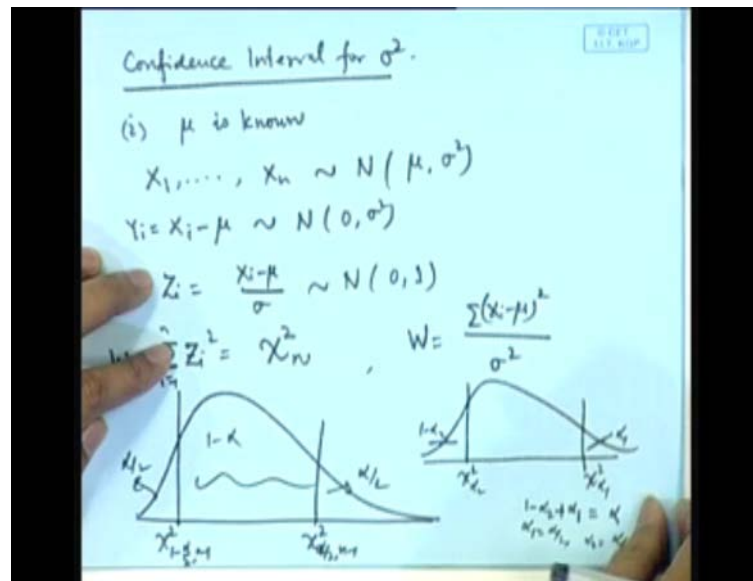 Confidence Interval for σ².
(i) μ is known
X₁, ....., Xₙ ~ N( μ, σ²)
Yᵢ = Xᵢ-μ ~ N( 0, σ²)
Zᵢ = (Xᵢ-μ)/σ ~ N( 0, 1)
Σ Zᵢ² = χ²ₙ , W = Σ(Xᵢ-μ)²/σ²
1-α α/2
χ²_{1-α/2, n-1} χ²_{α/2, n-1}
1-α₂ α₁
χ²_{α₂} χ²_{α₁}
1-α₂+α₁ = α